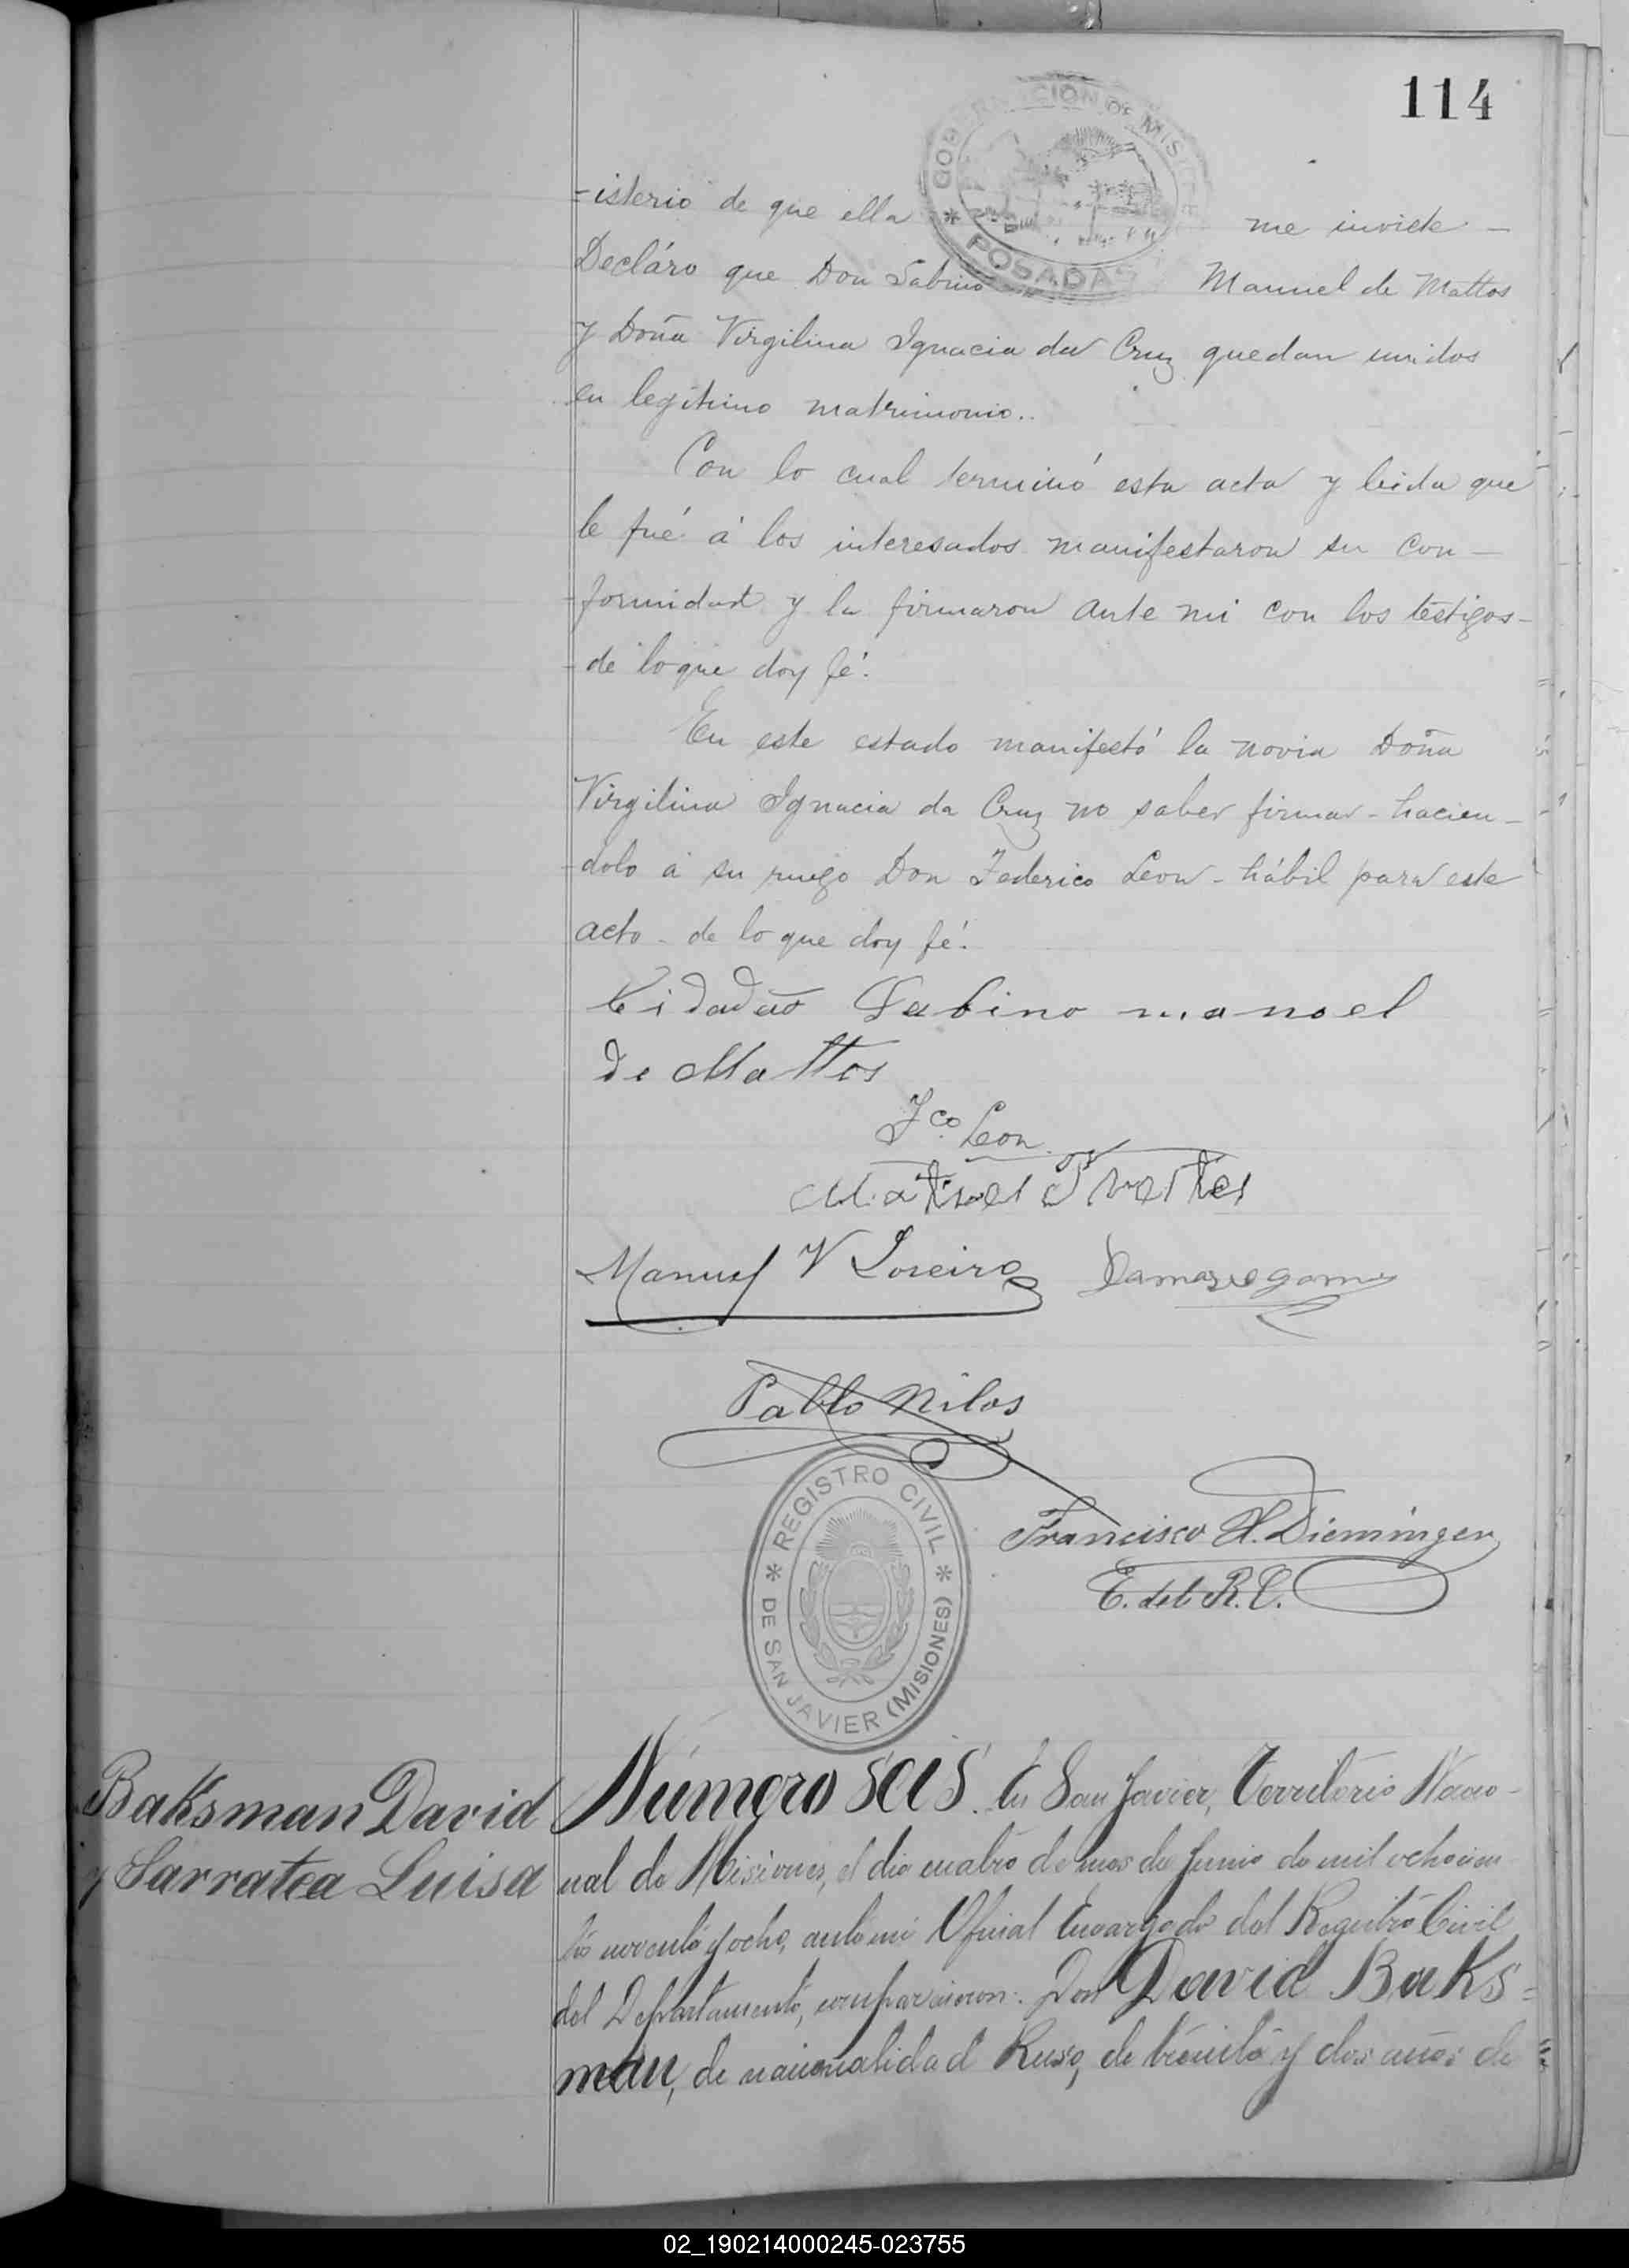 114
GOBERNACION DE MISIONES
* POSADAS
-isterio de que ella me inviete -
Decláro que Don Sabino Manuel de Mattos
y Doña Virgilina Ignacia da Cruz quedan unidos
en legítimo matrimonio..
Con lo cual terminó esta acta y leida que
le fué á los interesados manifestaron su con-
-formidad y la firmaron ante mi con los testigos-
-de lo que doy fé.
En este estado manifestó la novia Doña
Virgilina Ignacia da Cruz no saber firmar - hacien-
-dolo á su ruego Don Federico Leon - hábil para este
acto - de lo que doy fé.
Cidadão Sabino manoel
de Mattos
Fco. Leon
Manuel V Loreiro
Pablo Nilos
REGISTRO CIVIL
* DE SAN JAVIER (MISIONES) *
Francisco A. Dieminger
E. del R. C.
Baksman David
y Sarratea Luisa
Número seis. En San Javier, Territorio Nacio-
nal de Misiones, el dia cuatro de mes de Junio de mil ochocien
tos noventa y ocho, ante mi Oficial Encargado del Registro Civil
del Departamento, comparecieron: Don David Baks=
man, de nacionalidad Ruso, de treinta y dos años de
02_190214000245-023755